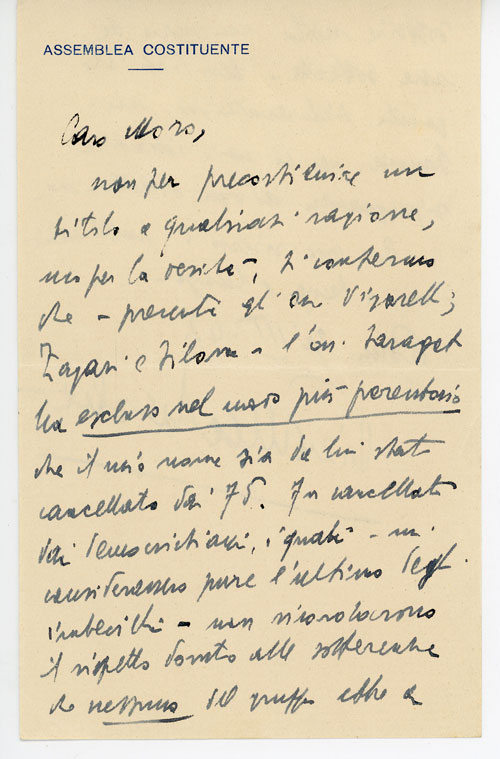 ASSEMBLEA COSTITUENTE
Caro Moro,
non per precostituire un
titolo a qualsiasi ragione,
ma per la verità, ti confermo
che - presenti gli on. Vigorelli,
Zagari e Silone - l'on. Saragat
ha escluso nel modo più perentorio
che il mio nome sia da lui stato
cancellato dai 75. Fu cancellato
dai democristiani, i quali - mi
considerassero pure l'ultimo degli
imbecilli - non
il rispetto dovuto alle sofferenze
che nessuno del gruppo ebbe a